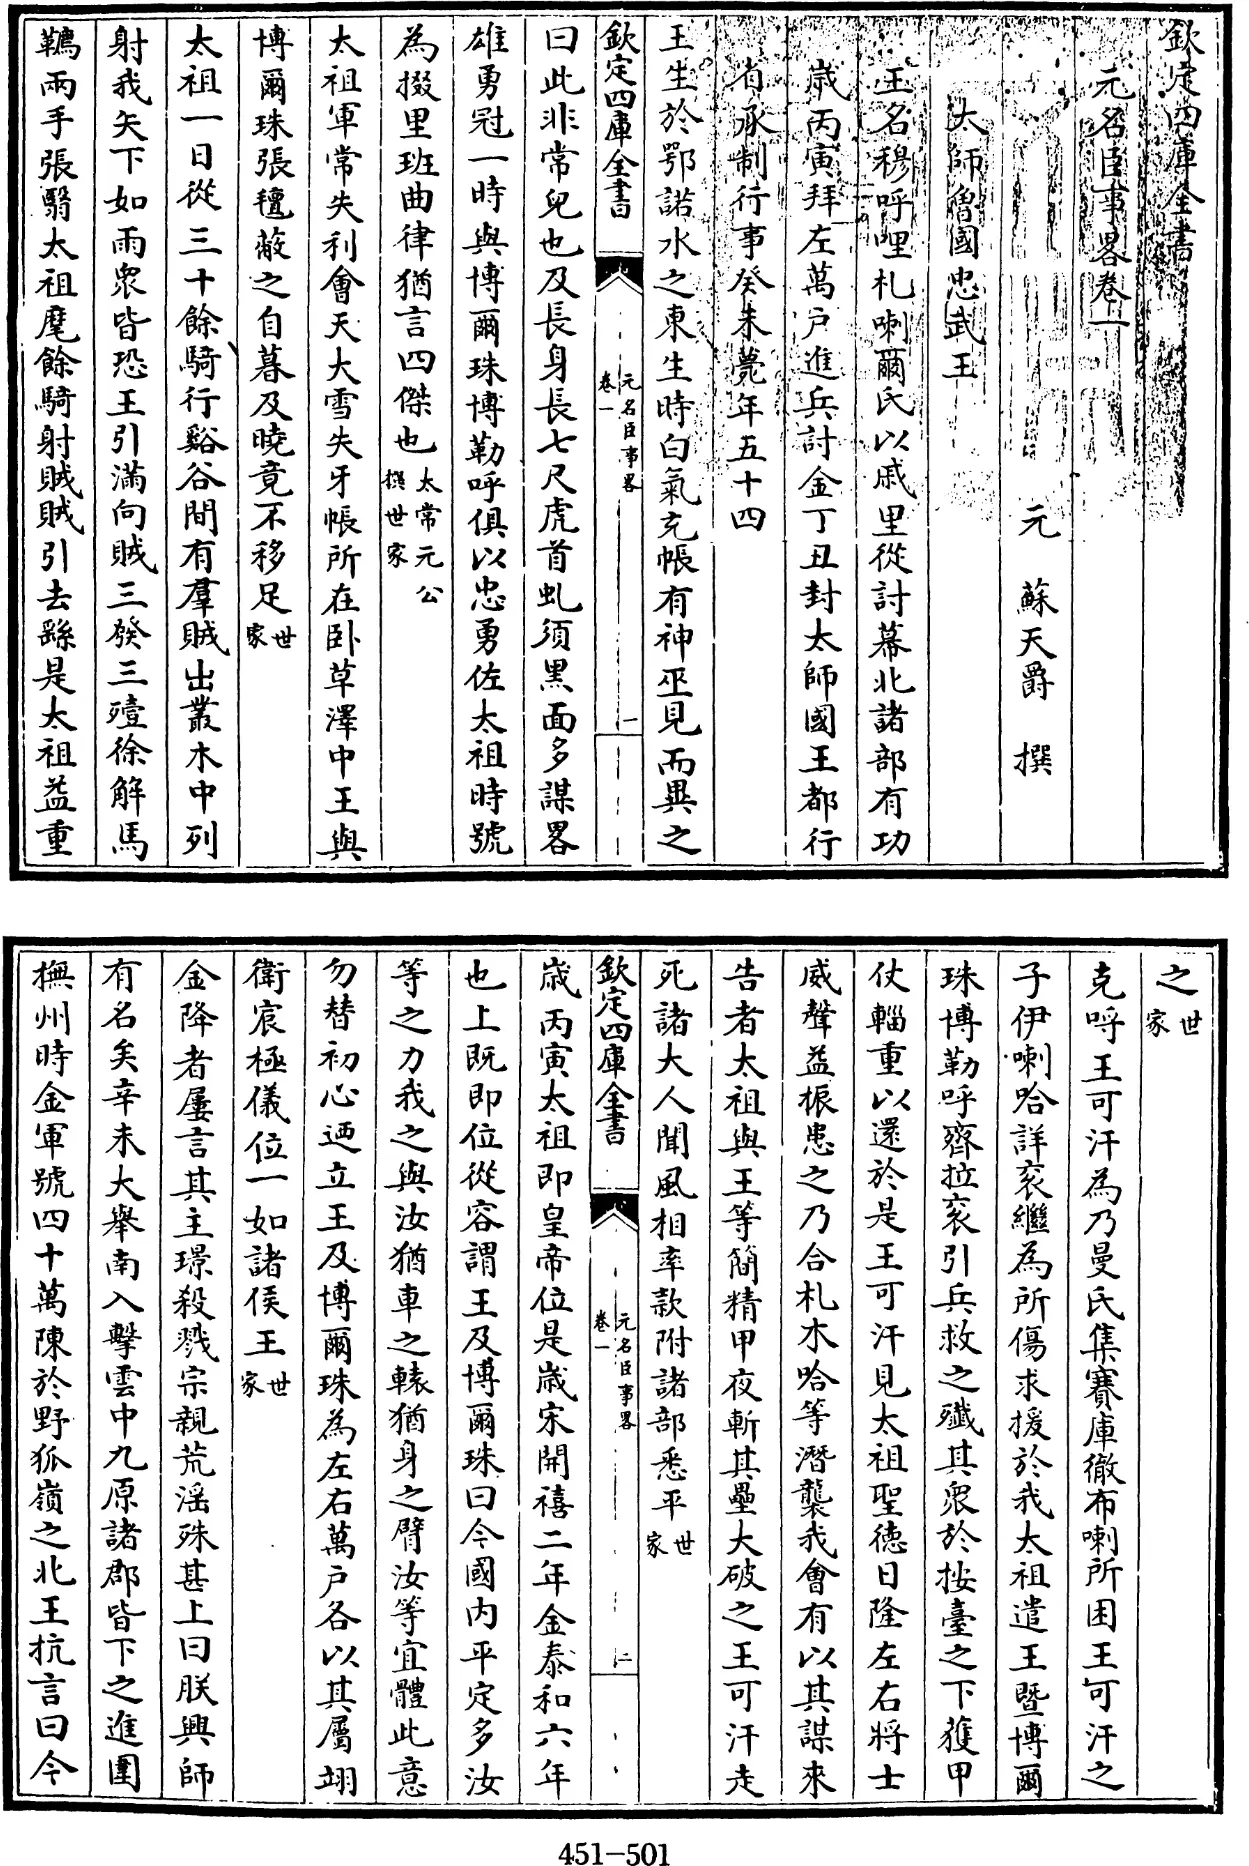 欽定四庫全書
元名臣事畧卷一
元 蘇天爵 撰
太師魯國忠武王
王名穆呼哩札喇爾氏以戚里從討幕北諸部有功
歲丙寅拜左萬户進兵討金丁丑封太師國王都行
省承制行事癸未薨年五十四
王生於鄂諾水之東生時白氣充帳有神巫見而異之
欽定四庫全書 元名臣事畧 卷一 一
曰此非常兒也及長身長七尺虎首虬須黑面多謀畧
雄勇冠一時與博爾珠博勒呼俱以忠勇佐太祖時號
為掇里班曲律猶言四傑也太常元公撰世家
太祖軍常失利會天大雪失牙帳所在卧草澤中王與
博爾珠張氊蔽之自暮及曉竟不移足世家
太祖一日從三十餘騎行谿谷間有羣賊出叢木中列
射我矢下如雨衆皆恐王引滿向賊三發三殪徐解馬
韉兩手張翳太祖麾餘騎射賊賊引去繇是太祖益重
之世家
克呼王可汗為乃曼氏集賽庫徹布喇所困王可汗之
子伊喇哈詳衮繼為所傷求援於我太祖遣王暨博爾
珠博勒呼齊拉衮引兵救之殲其衆於按臺之下獲甲
仗輜重以還於是王可汗見太祖聖徳日隆左右將士
威聲益振患之乃合札木哈等潛襲我會有以其謀來
告者太祖與王等簡精甲夜斬其壘大破之王可汗走
死諸大人聞風相率款附諸部悉平世家
欽定四庫全書 元名臣事畧 卷一 二
歲丙寅太祖即皇帝位是歲宋開禧二年金泰和六年
也上既即位從容謂王及博爾珠曰今國内平定多汝
等之力我之與汝猶車之轅猶身之臂汝等宜體此意
勿替初心迺立王及博爾珠為左右萬户各以其屬翊
衛宸極儀位一如諸侯王世家
金降者屢言其主璟殺戮宗親荒淫殊甚上曰朕興師
有名矣辛未大舉南入擊雲中九原諸郡皆下之進圍
撫州時金軍號四十萬陳於野狐嶺之北王抗言曰今
451-501